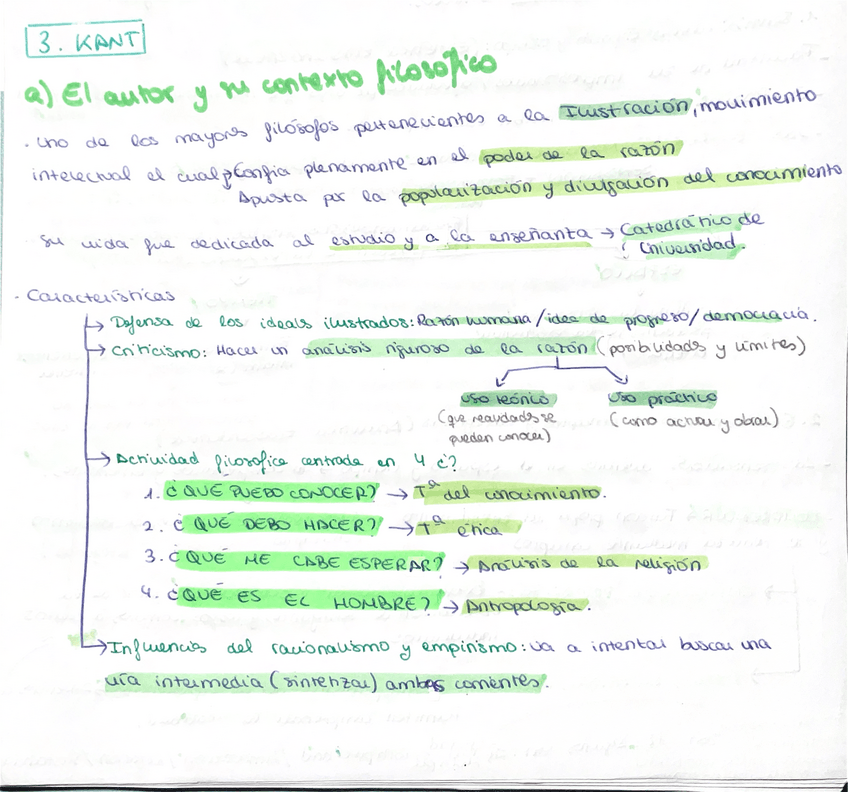 3. KANT
a) El autor y su contexto filosófico
· Uno de los mayores filósofos pertenecientes a la Ilustración, movimiento
intelectual el cual → Confía plenamente en el poder de la razón
→ Apuesta por la popularización y divulgación del conocimiento
Su vida fue dedicada al estudio y a la enseñanta → Catedrático de
Universidad.
· Características
→ Defensa de los ideals ilustrados: Razón humana / idea de progreso / democracia.
→ Criticismo: Hacer un análisis riguroso de la razón (posibilidads y límites)
uso teórico uso práctico
(que realidades se (como actuar y obrar)
pueden conocer)
→ Actividad filosófica centrada en 4 ¿?
1. ¿QUÉ PUEDO CONOCER? → Tª del conocimiento.
2. ¿QUÉ DEBO HACER? → Tª ética
3. ¿QUÉ ME CABE ESPERAR? → Análisis de la religión
4. ¿QUÉ ES EL HOMBRE? → Antropología.
→ Influencias del racionalismo y empirismo: va a intentar buscar una
vía intermedia (sintetizar) ambas corrientes.